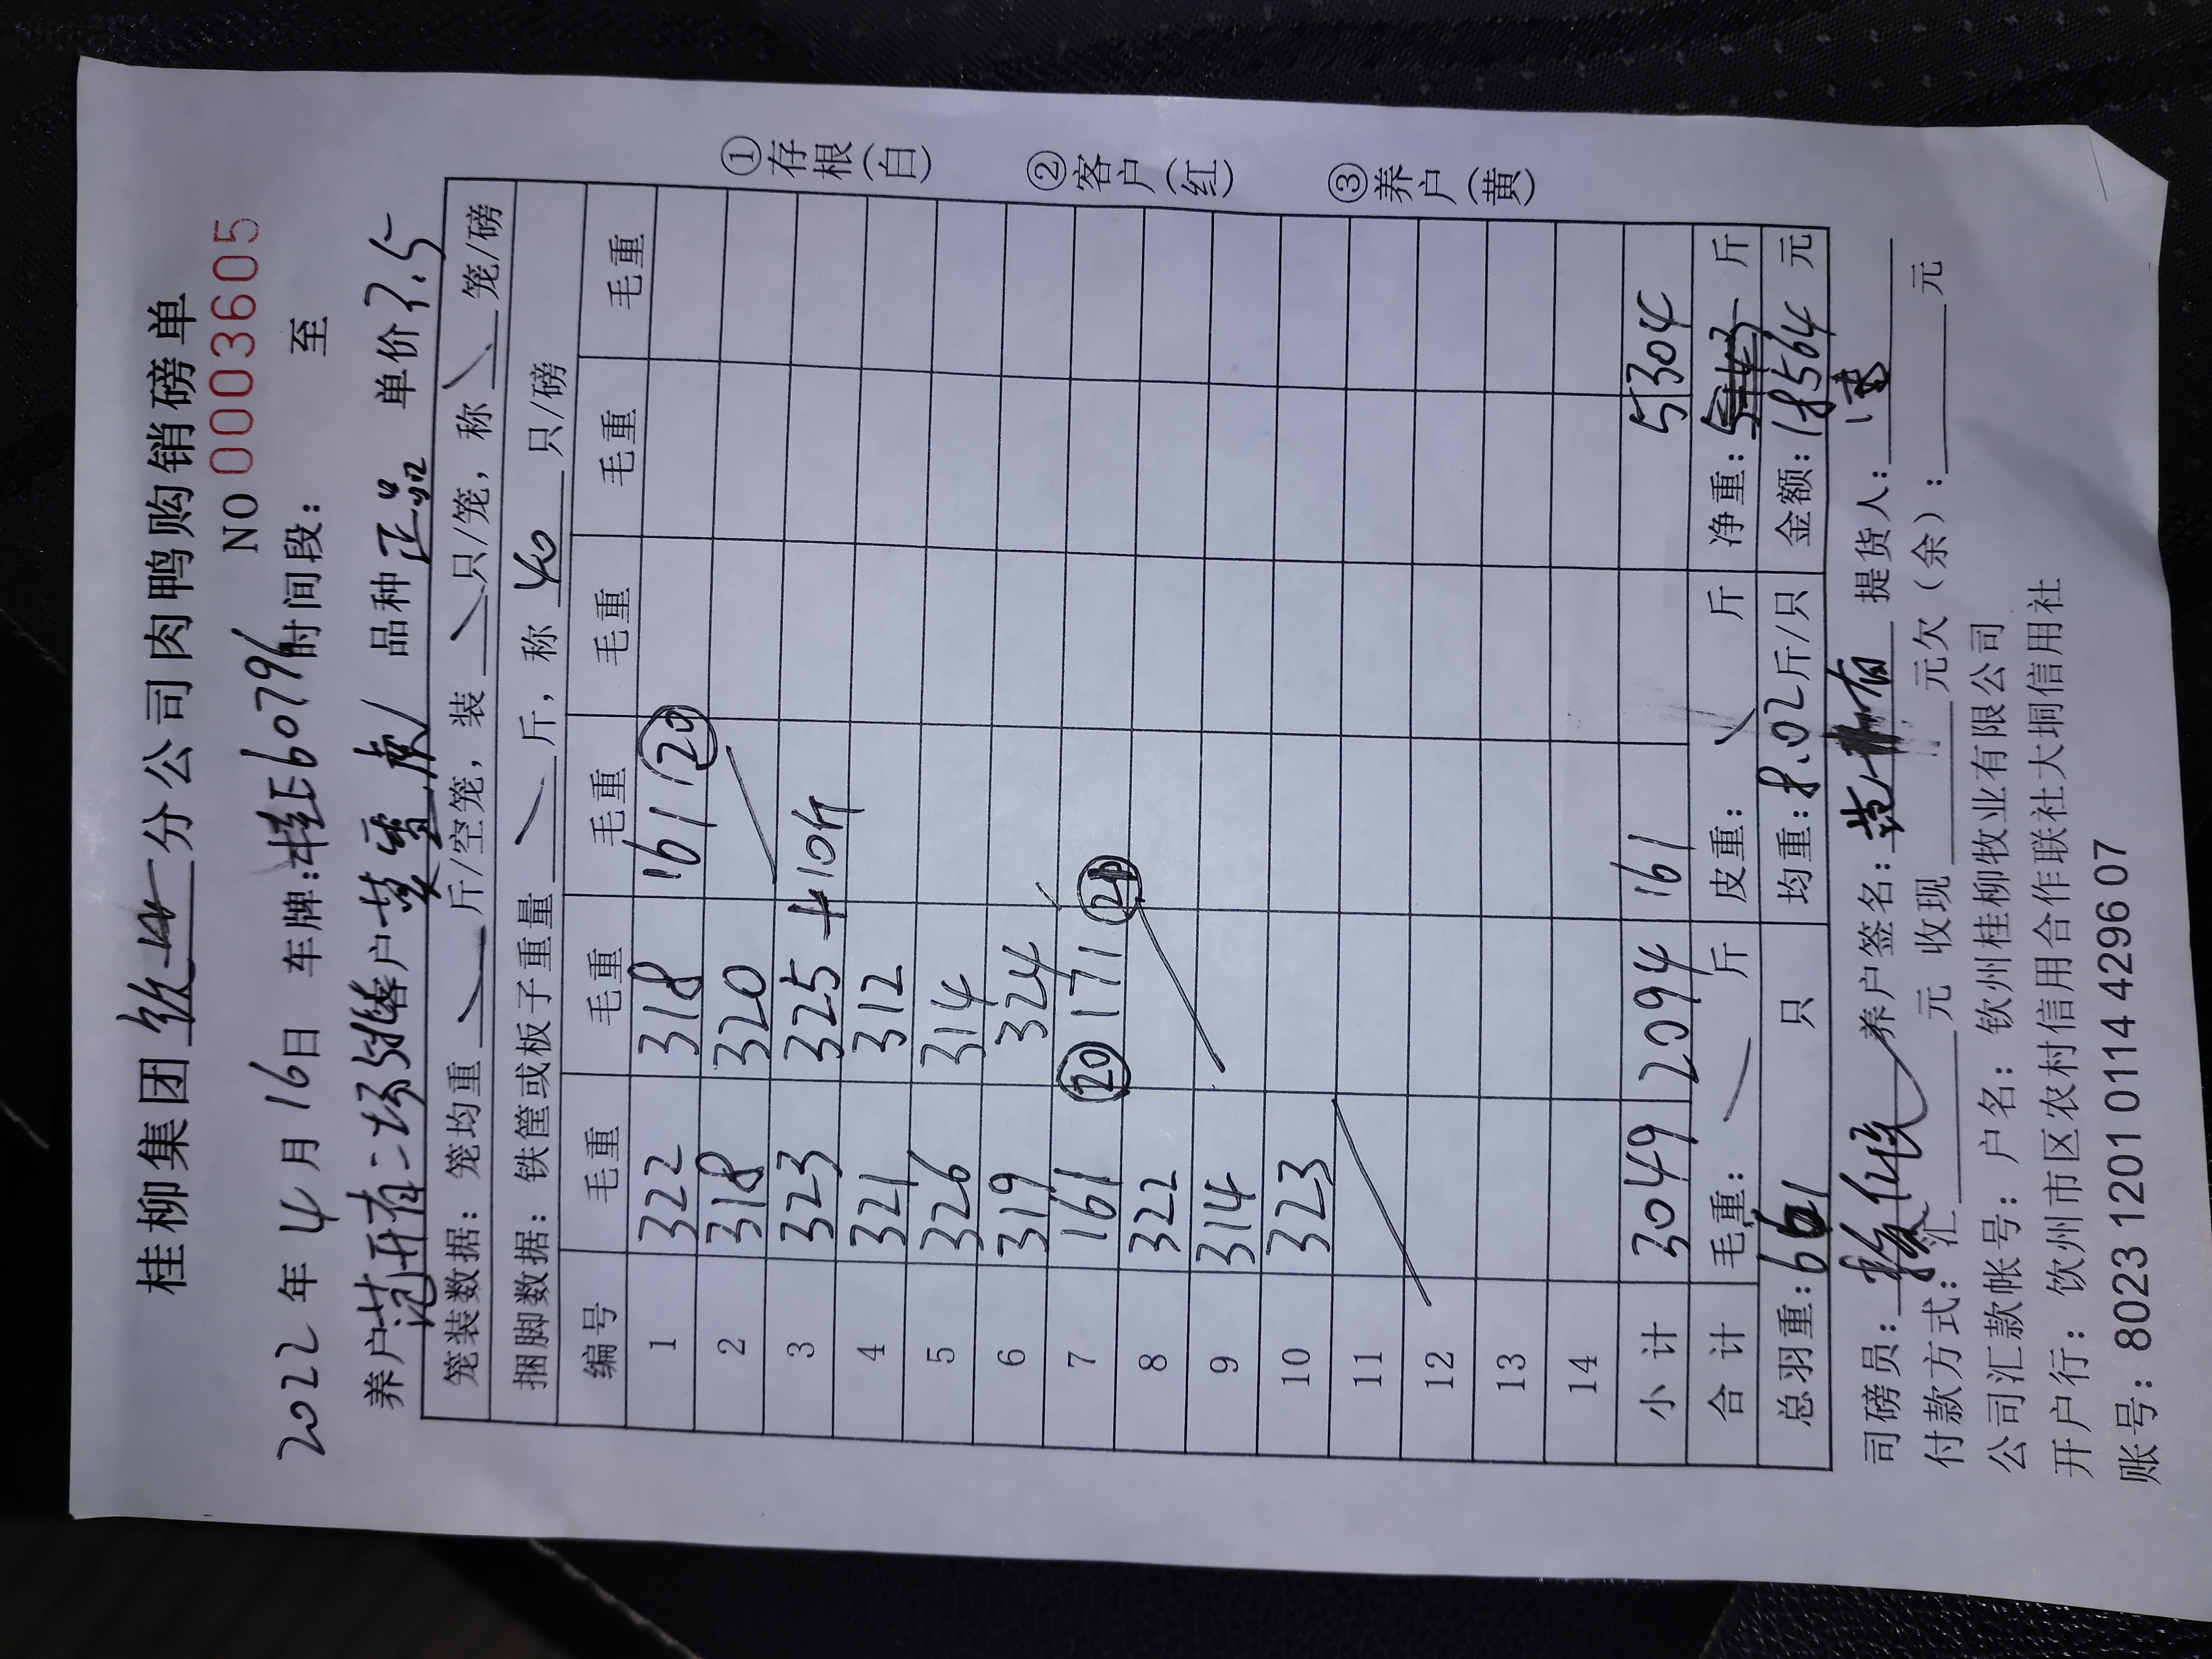 桂柳集团 钦州 分公司肉鸭购销磅单
NO 0003605
2022 年 4 月 16 日 车牌: 桂E60796 时间段: 至
养户 范开有二场 户 品种 正品 单价 3.5
笼装数据: 笼均重 斤/空笼, 装 只/笼, 称 笼/磅
捆脚数据: 铁筐或板子重量 斤, 称 40 只/磅
编号 毛重 毛重 毛重 毛重 毛重 毛重
1 322 318 161 20
2 318 320
3 323 325 +10斤
4 321 312
5 326 314
6 319 324
7 161 20 171 21
8 322
9 314
10 323
11
12
13
14
小计 3049 2094 161 5304
合计 毛重: 斤 皮重: 斤 净重: 斤
总羽重: 661 只 均重: 8.02 斤/只 金额: 18564 元
司磅员: 养户签名: 范开有 提货人:
付款方式: 汇 元 收现 元欠(余): 元
公司汇款帐号: 户名: 钦州桂柳牧业有限公司
开户行: 饮州市区农村信用合作联社大垌信用社
账号: 8023 1201 0114 4296 07
①存根(白)
②客户(红)
③养户(黄)